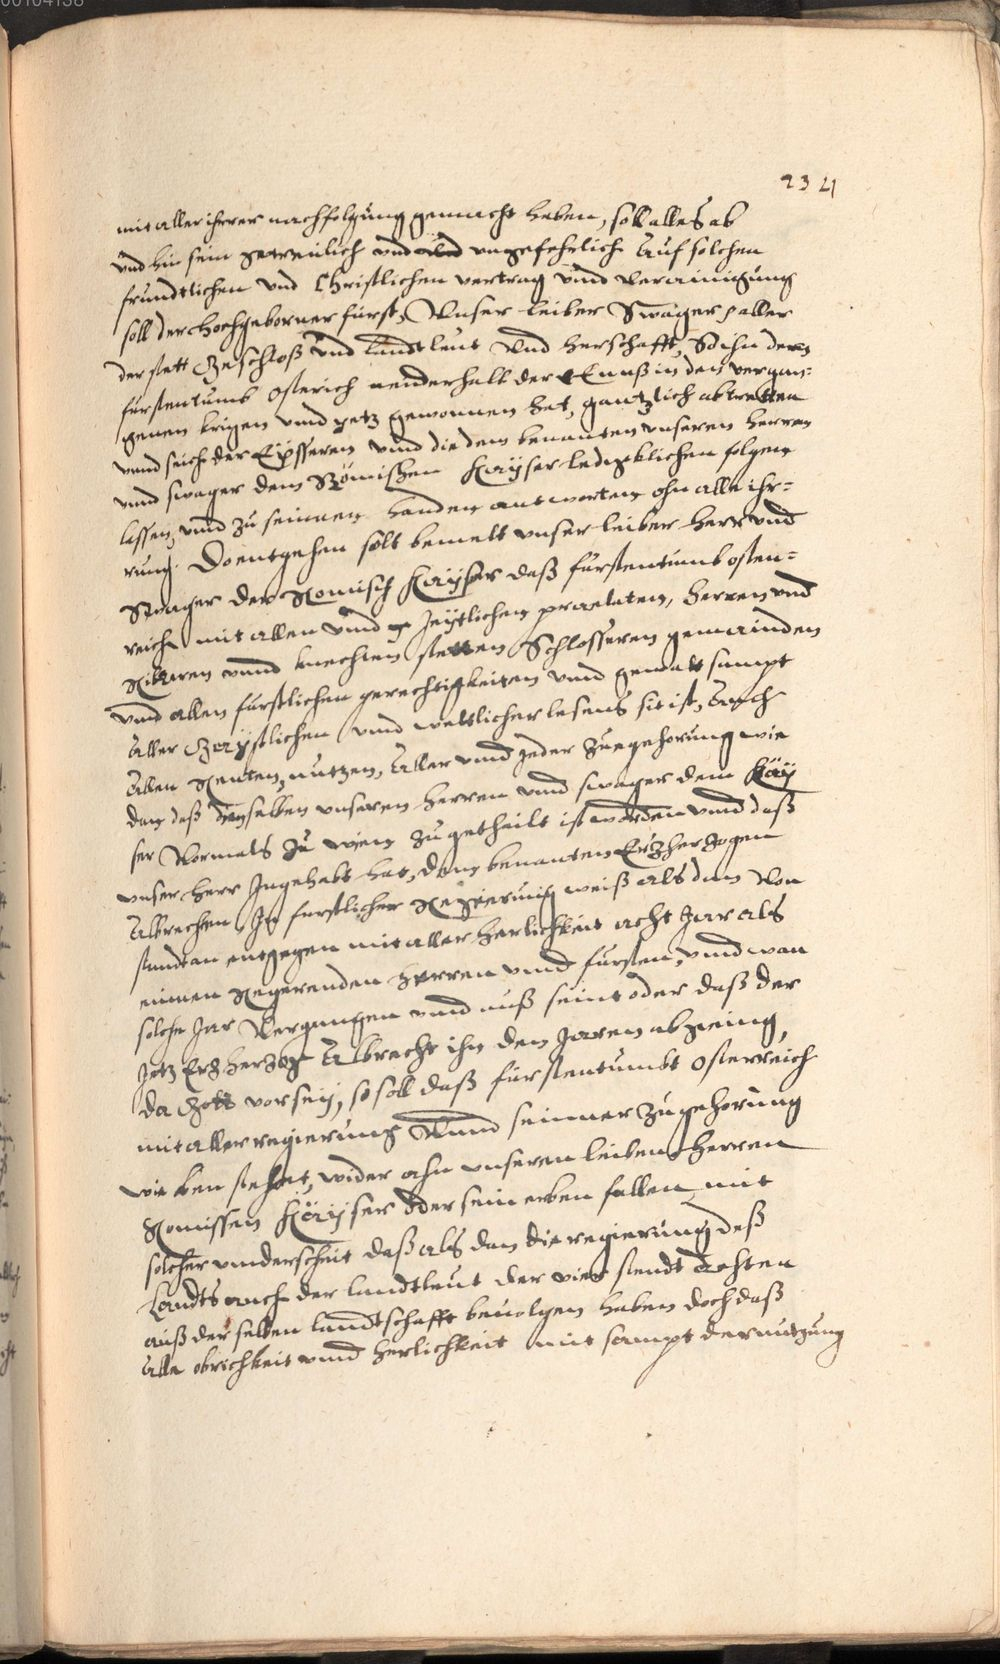 00104138
234
mit aller ihrer nachfolgung gemacht haben, soll alles ab
und hin sein getreulich und ungefehrlich Auf solchen
frundtlichen und Christlichen vertrag und Verainigung
soll der hochgeborner fürst, Unser leiber Swager aller
der stett Geschloß und landtleut Und herschafft, So ihn dem
fürstentumb Osterich nenderhalb der Ennß in den vergan=
genen krigen vnnd yetz gewonnen hat, gantzlich abtretten
vnnd seich der Eyssern vnnd die dem benanten vnseren herren
vnnd swager dem Römischen Kayser ledigklichen folgen
lassen, vnnd zu seinen handen antworten ohn alle ihr=
rung. Do entgehen solt bemelt vnser leiber herr vnd
Swager der Romisch Kayser daß fürstentumb osten=
reich mit allen vnnd Jeytlichen praelaten, herren vnd
Rittren vnnd knechten stetten Schlosseren gemainden
vnd allen fürstlichen gerechtigkeiten vnd gewalt sampt
Aller Gayistlichen vnnd weltlicher lesens sit ist, Auch
Allen Renten, nutzen, Aller vnnd jeder zuegehorung wie
dan daß demselben vnseren herren vnnd swager dem Kay
ser Vormals zu wien zugetheilt ist worden vnnd daß
vnser herr Ingehabt hat, dem benanten Erzherzogen
Albrechen In furstlicher Regierung weiß als dan Von
stundt an entgegen mit aller herlichkeit acht Jar als
einnen Regerenden herren vnnd fürsten, vnnd wan
solche Jar Vergangen vnnd auß seint oder daß der
Jetz Erzherzog Albrecht ihn den Jaren abgieng,
da Gott vor sey, so soll daß fürstentumbt Osterreich
mit aller regierung Vnnd seinner zugehorung
wie ben stehet, wider ahn vnseren leiben herren
Romissen Kayser oder sein erben fallen mit
solcher vnderscheit daß als dan die regierung deß
Landts auch der landtleut der vier stendt
auß der selben landtschafft beuolgen haben doch daß
Alle obrichkeit vnnd herlichkeit mit sampt der nutzung